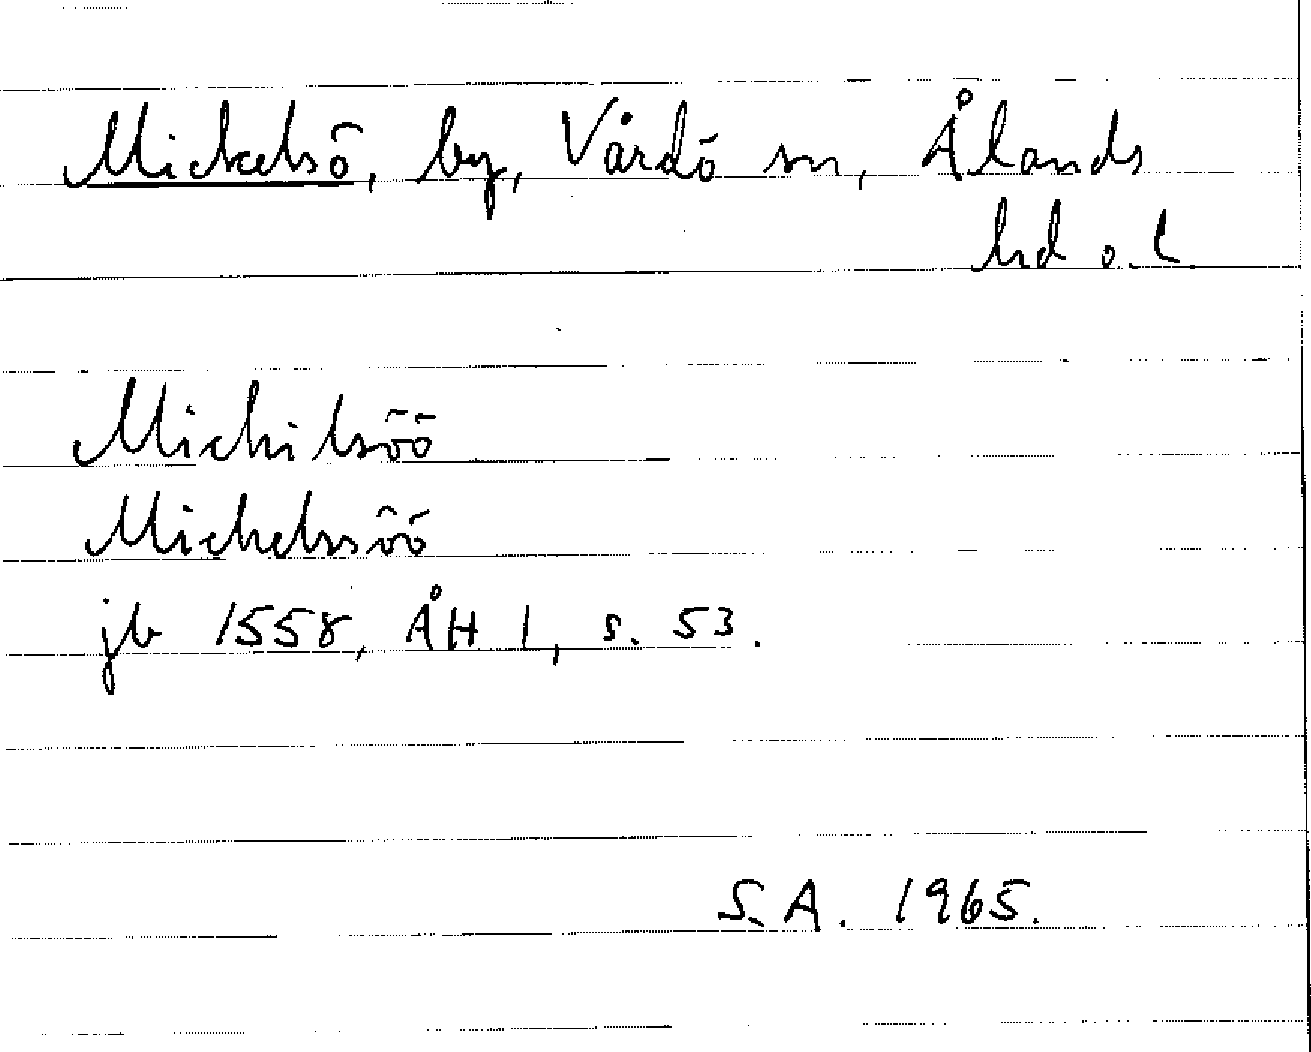 Mickelsö, by, Vårdö sn, Ålands
hd o. l.
Michilsöö
Michelssöö
jb 1558, ÅH I, s. 53.
S.A. 1965.